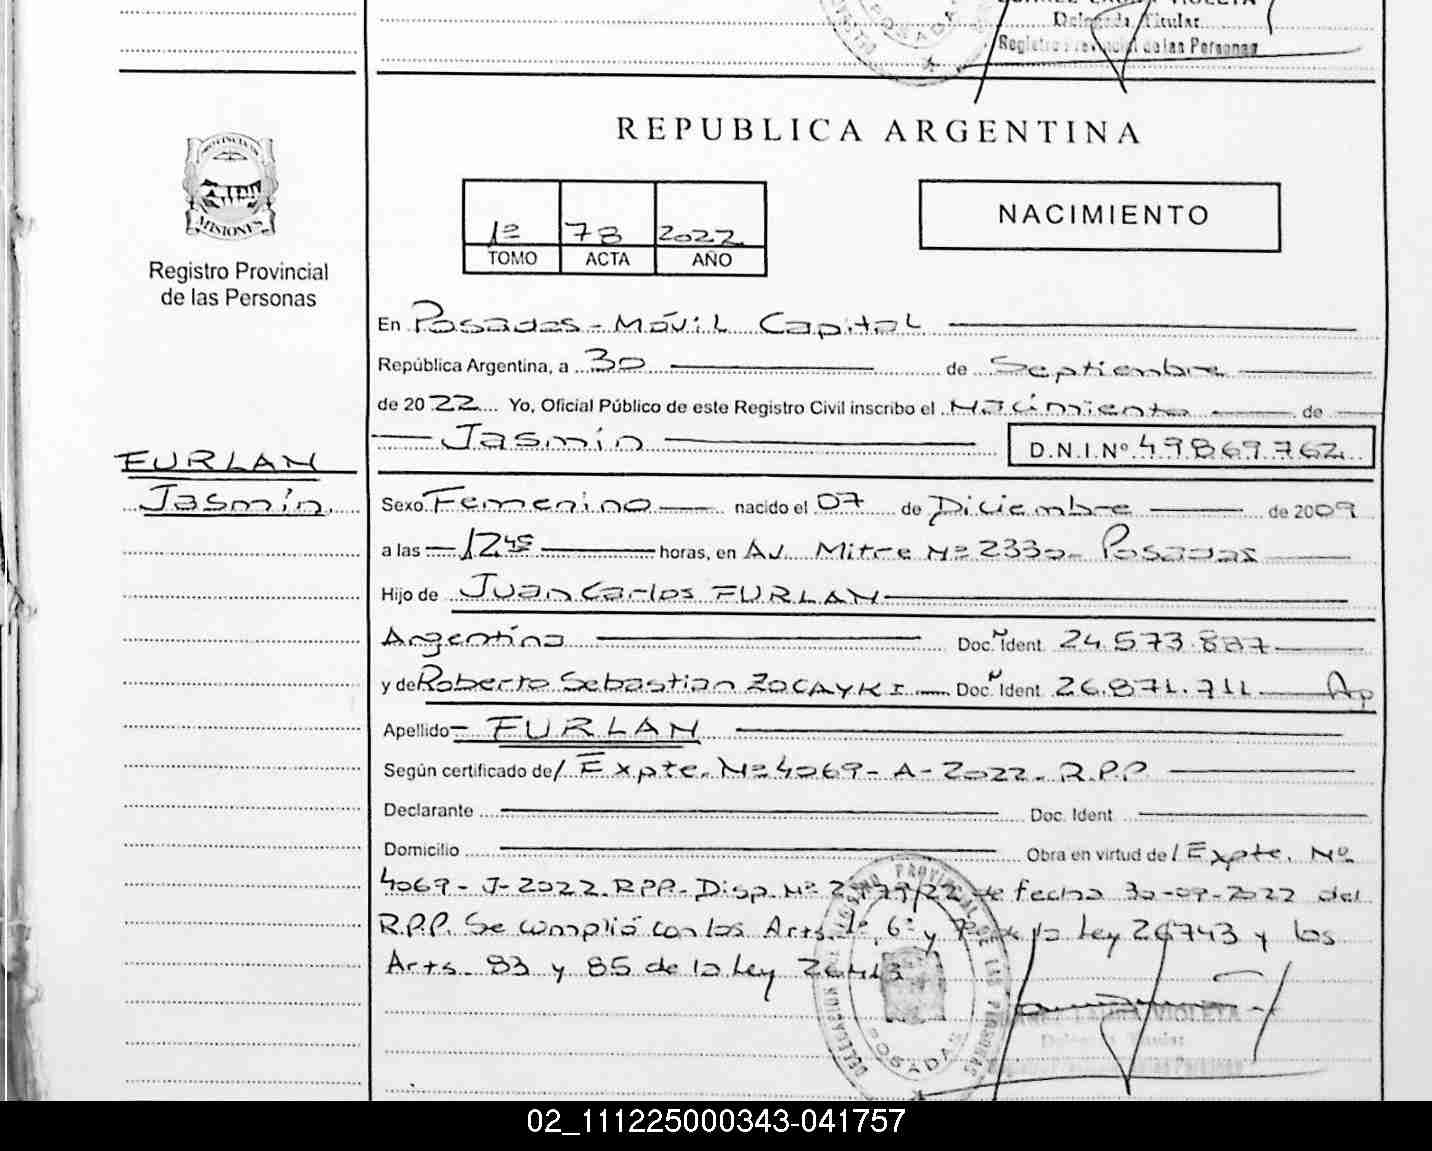 Delegada Titular
Registro Provincial de las Personas
POSADAS
REPUBLICA ARGENTINA
PROVINCIA DE
MISIONES
Registro Provincial
de las Personas
1º 78 2022
TOMO ACTA AÑO
NACIMIENTO
En Posadas - Móvil Capital
República Argentina, a 30 de Septiembre
de 2022 Yo, Oficial Público de este Registro Civil inscribo el Nacimiento de
Jasmín D.N.I.Nº 49.869.762
FURLAN
Jasmín
Sexo Femenino nacido el 07 de Diciembre de 2009
a las 12 45 horas, en Av. Mitre Nº 2330 - Posadas
Hijo de Juan Carlos FURLAN
Argentina Doc. Ident 24.573.887
y de Roberto Sebastian ZOCAYKI Doc. Ident 26.871.711 Ap
Apellido FURLAN
Según certificado de / Expte. Nº 4069 - A - 2022 - R.P.P
Declarante Doc. Ident
Domicilio Obra en virtud de / Expte. Nº
4069 - J - 2022 R.P.P - Disp. Nº /22 de fecha 30-09-2022 del
R.P.P. Se cumplió con los Arts. 1º, 6º y de la Ley 26743 y los
Arts. 83 y 85 de la Ley 26413
DELEGACION REGISTRO PROVINCIAL DE LAS PERSONAS
POSADAS
VIOLETA
Titular
de las Personas
02_111225000343-041757